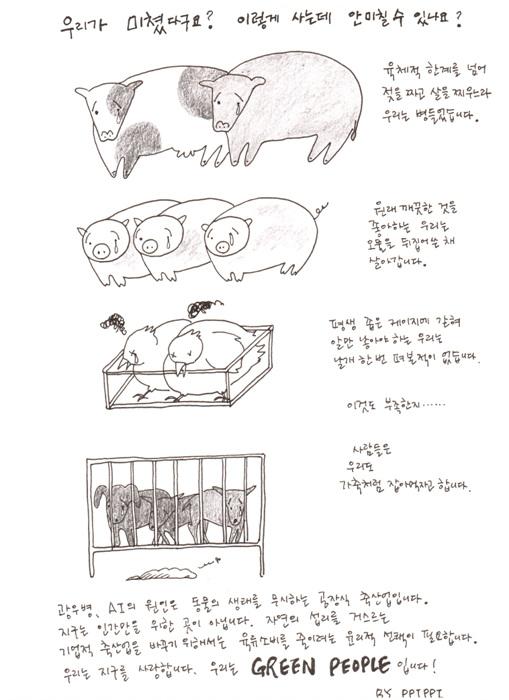 우리가 미쳤다구요? 이렇게 사는데 안미칠수 있나요?
육체적 한계를 넘어
젖을 짜고 살을 찌우느라
우리는 병들었습니다.
원래 깨끗한 것을
좋아하는 우리는
오물을 뒤집어쓴 채
살아갑니다.
평생 좁은 케이지에 갇혀
알만 낳아야 하는 우리는
날개 한번 펴볼적이 없습니다.
이것도 부족한지......
사람들은
우리도
가축처럼 잡아먹자고 합니다.
광우병, AI의 원인은 동물의 생태를 무시하는 공장식 축산업입니다.
지구는 인간만을 위한 곳이 아닙니다. 자연의 섭리를 거스르는
기업적 축산업을 바꾸기 위해서는 육류소비를 줄이려는 윤리적 선택이 필요합니다.
우리는 지구를 사랑합니다. 우리는 GREEN PEOPLE 입니다!
BY PPTPPT